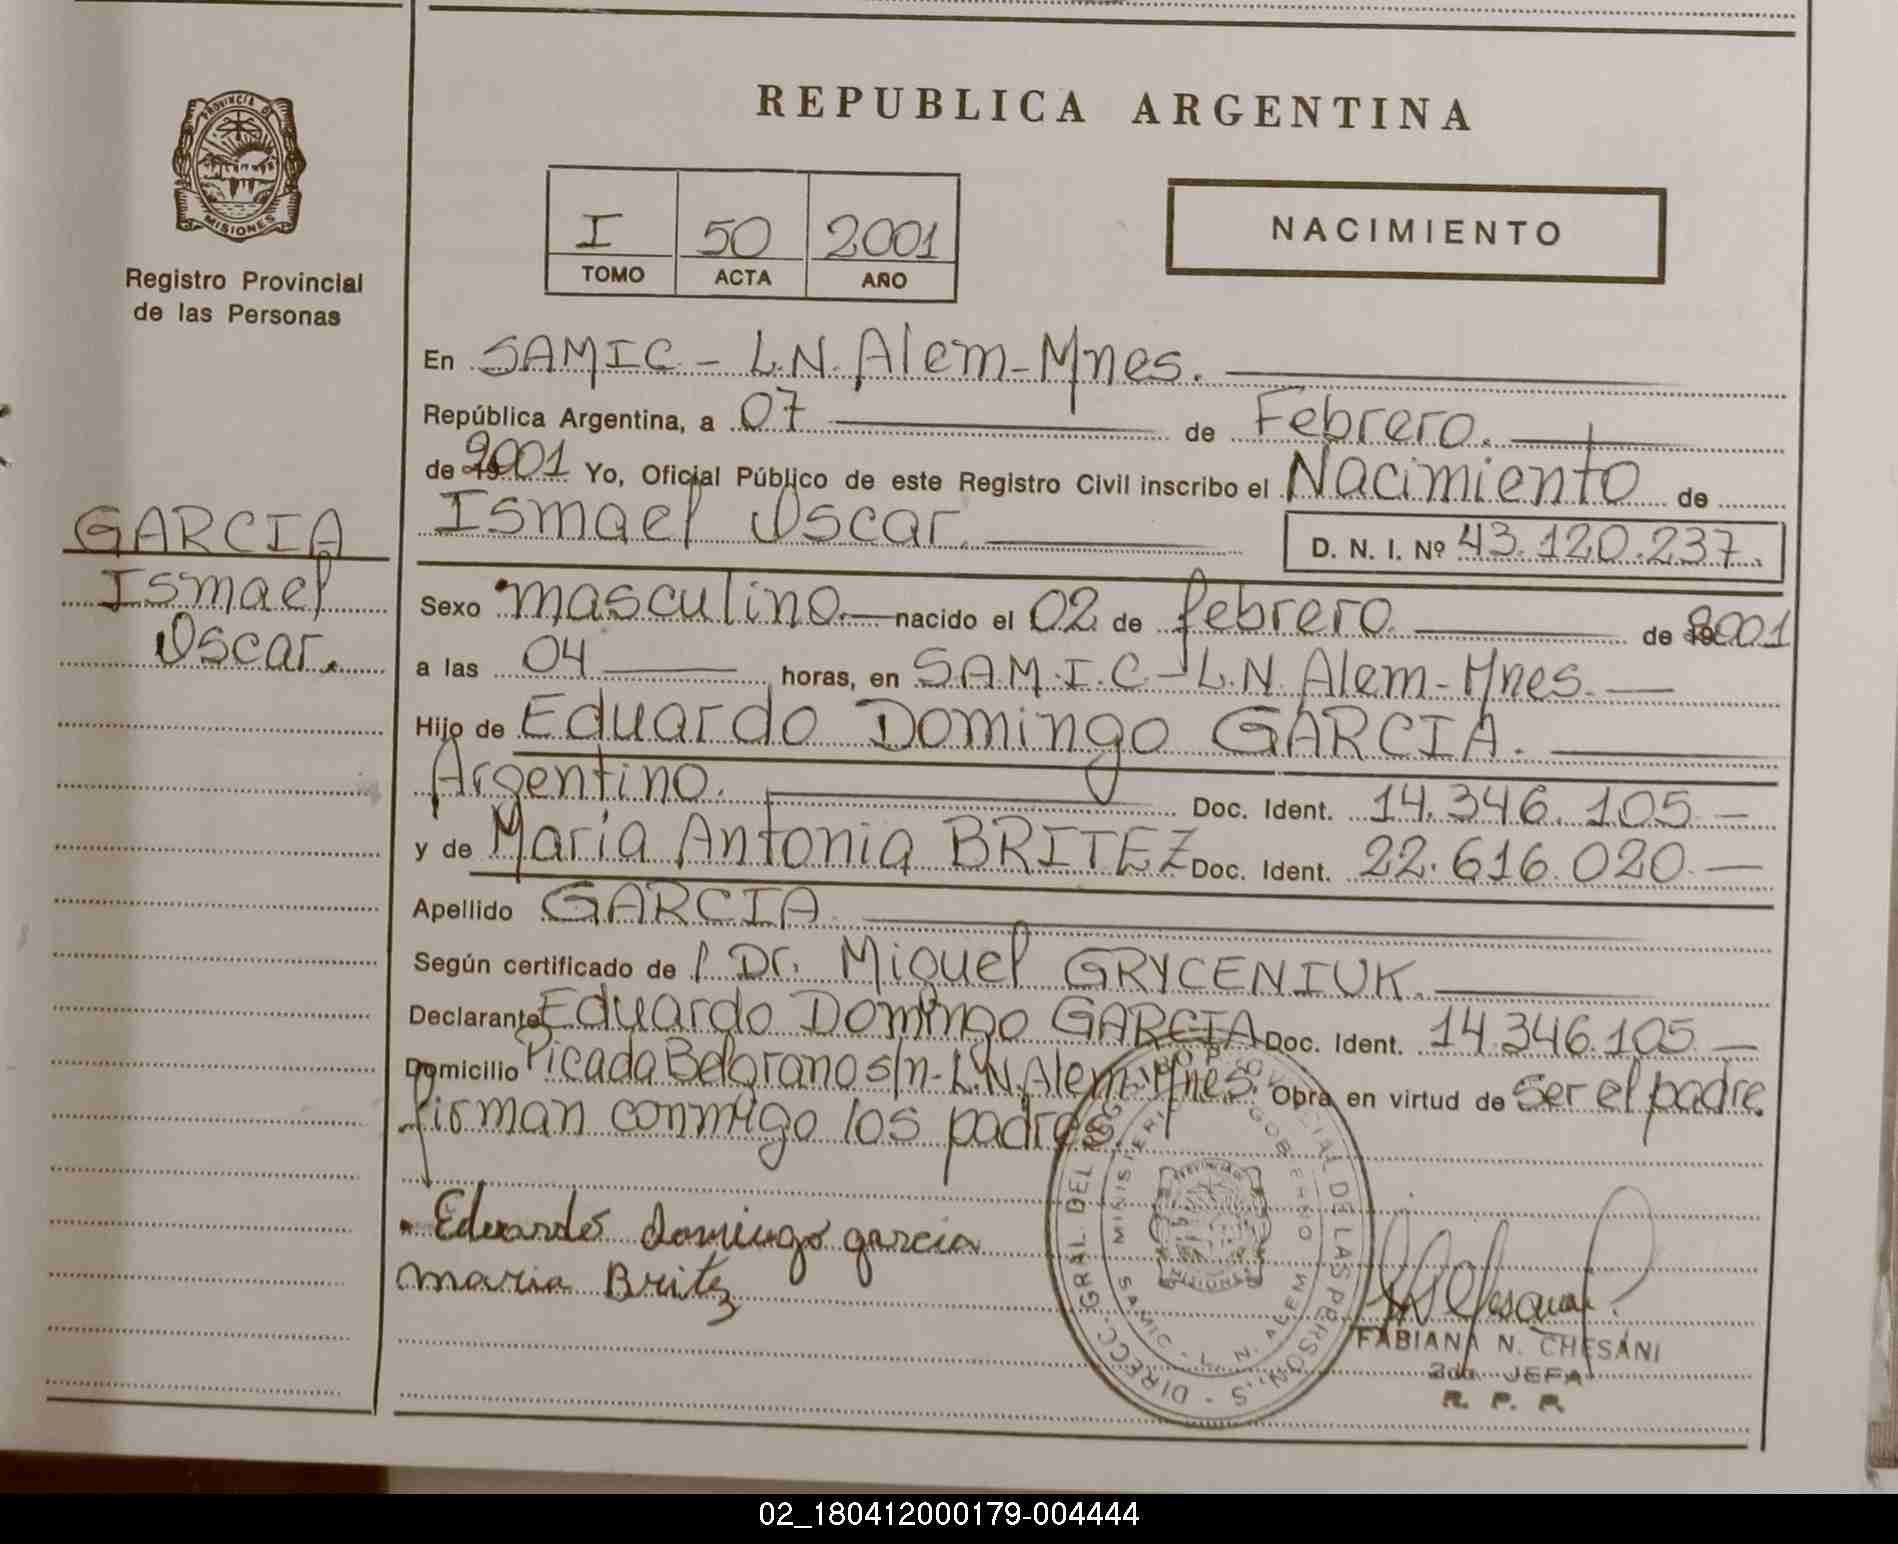 PROVINCIA DE
MISIONES
Registro Provincial
de las Personas
GARCIA
Ismael
Oscar.
REPUBLICA ARGENTINA
I 50 2001
TOMO ACTA AÑO
NACIMIENTO
En SAMIC - L.N. Alem - Mnes.
República Argentina, a 07 de Febrero.
de 2001 Yo, Oficial Público de este Registro Civil inscribo el Nacimiento de
Ismael Oscar. D. N. I. Nº 43.120.237.
Sexo masculino. nacido el 02 de febrero de 2001
a las 04 horas, en S.A.M.I.C - L.N. Alem - Mnes.
Hijo de Eduardo Domingo GARCIA.
Argentino. Doc. Ident. 14.346.105 -
y de Maria Antonia BRITEZ Doc. Ident. 22.616.020 -
Apellido GARCIA
Según certificado de / Dr. Miguel GRYCENIUK.
Declarante Eduardo Domingo GARCIA Doc. Ident. 14.346.105 -
Domicilio Picada Belgrano s/n - L.N. Alem - Mnes. Obra en virtud de ser el padre.
firman conmigo los padres.
Eduardo domingo garcia
maria Britez
DIRECC. GRAL. DEL REGISTRO PROVINCIAL DE LAS PERSONAS
MINISTERIO GOBIERNO
SAMIC - L. N. ALEM
MISIONES
FABIANA N. CHESANI
2da. JEFA
R. P. P.
02_180412000179-004444